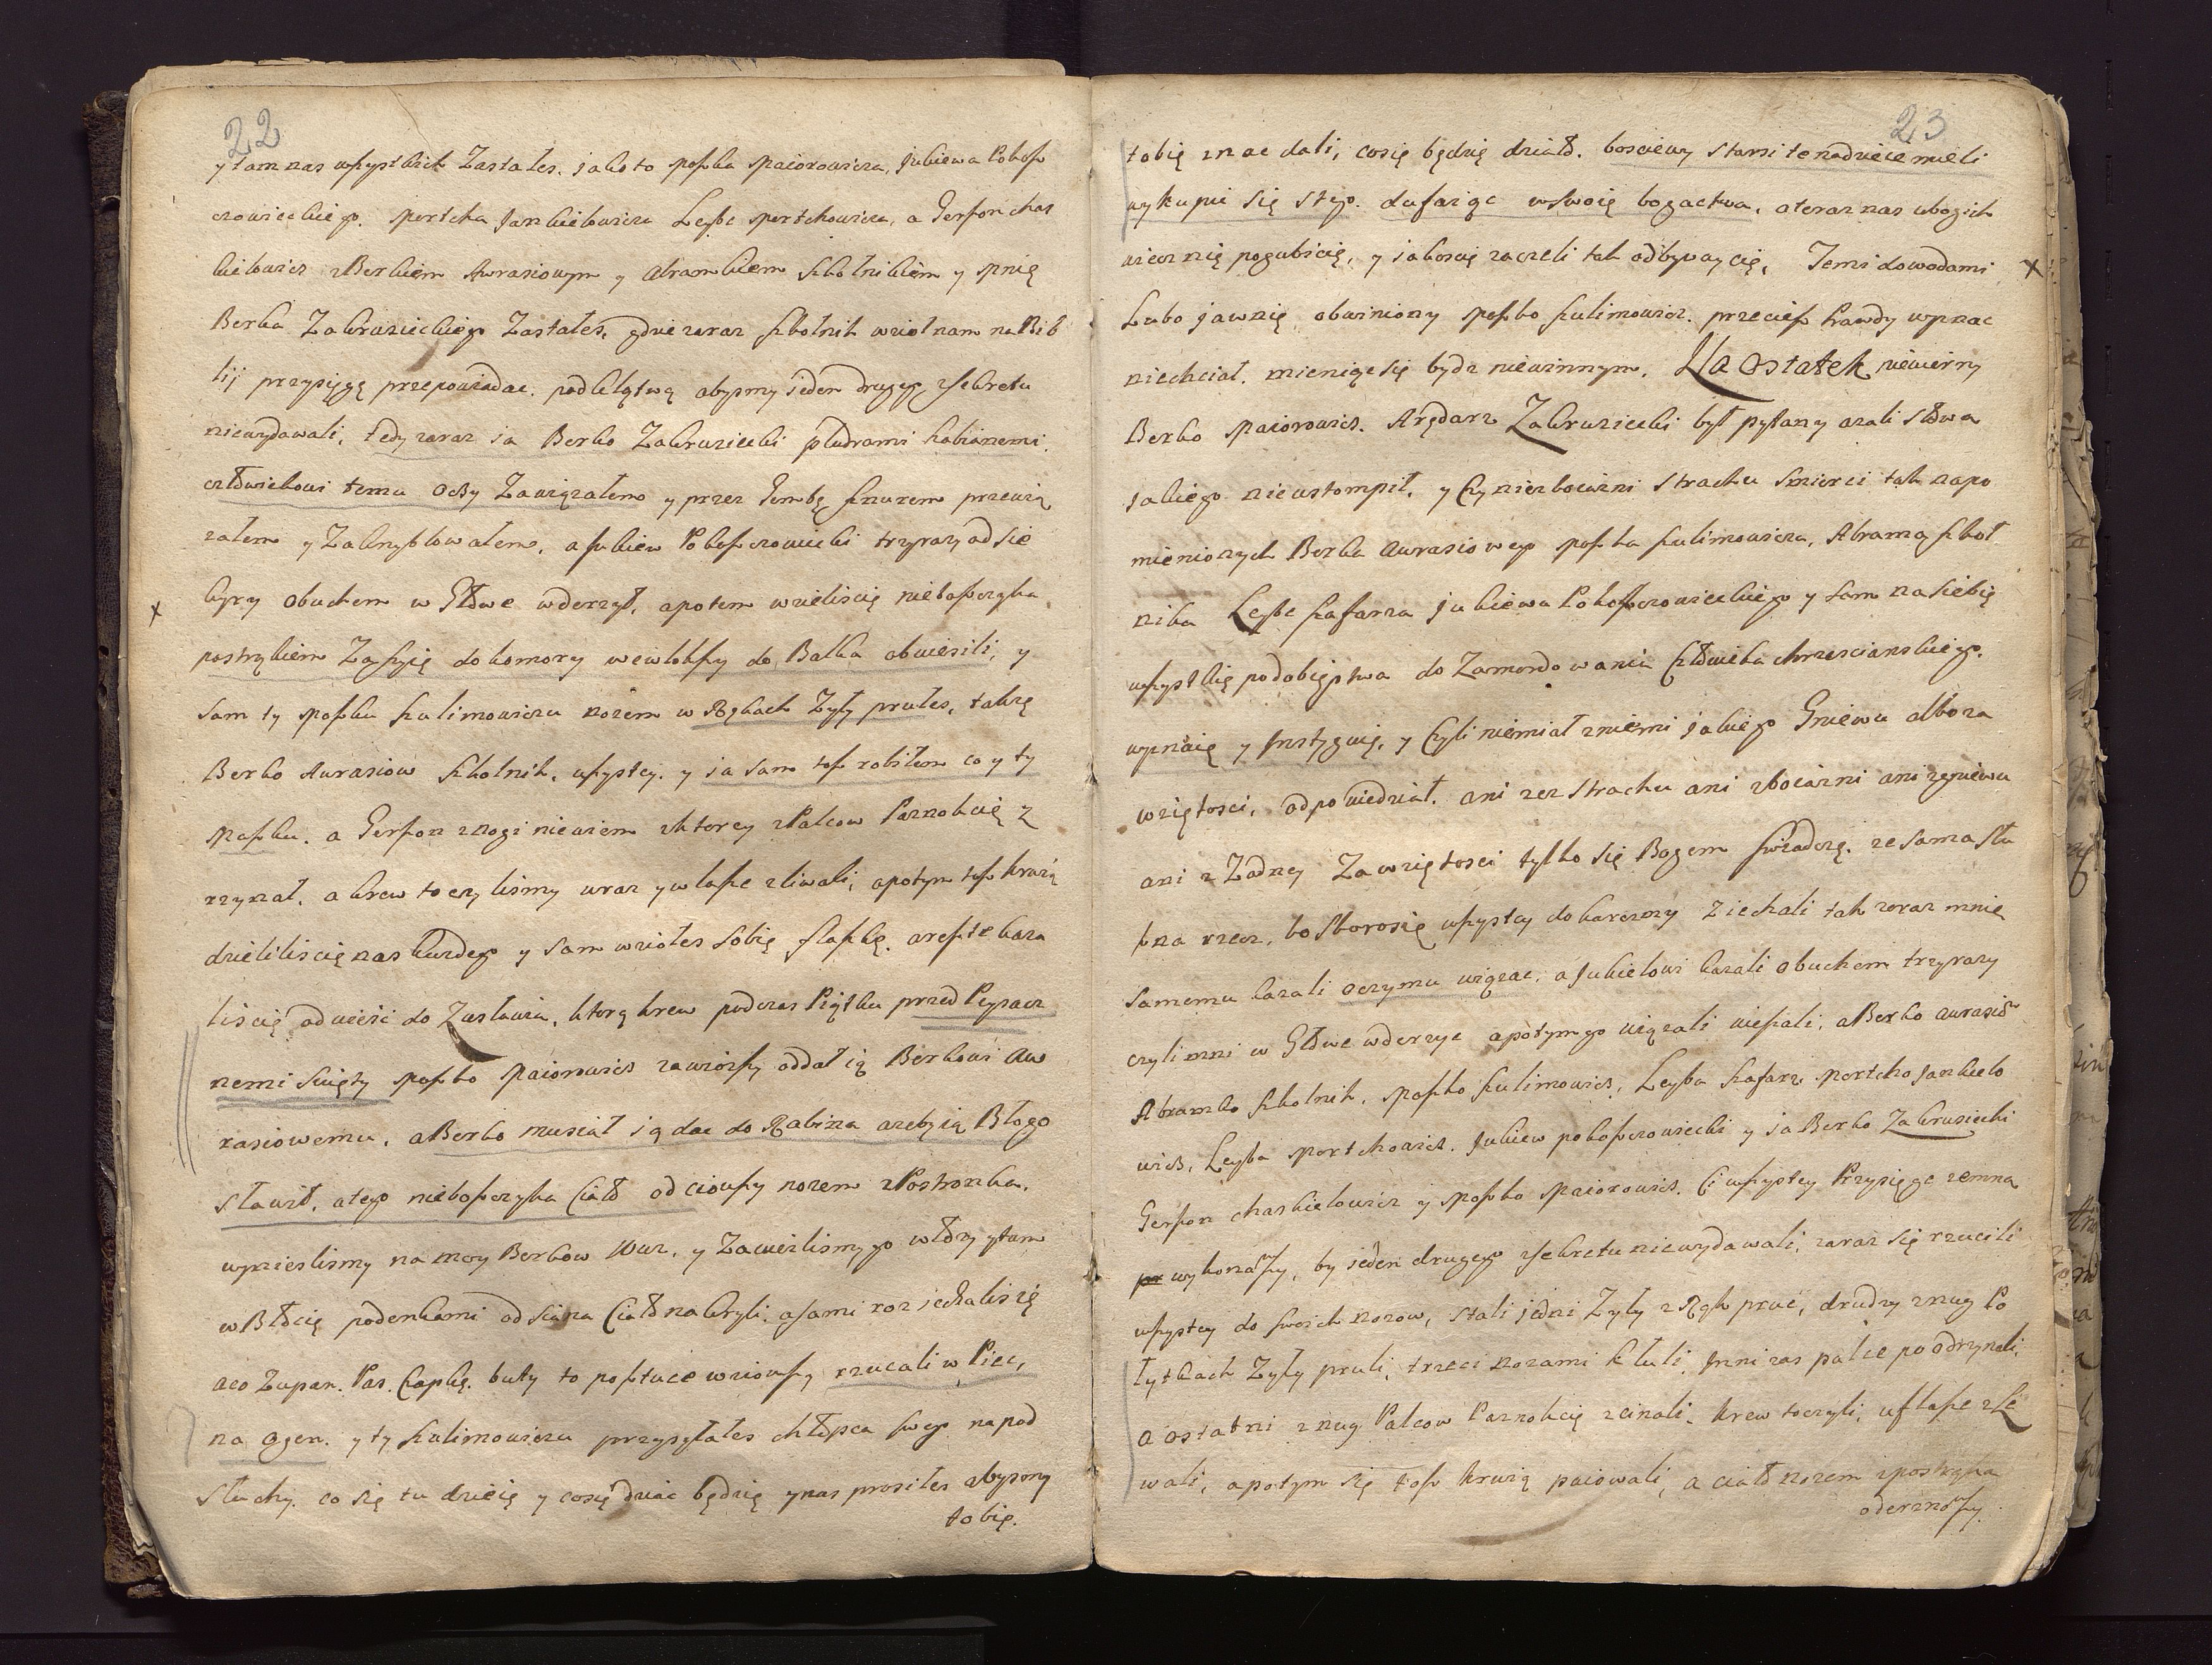 22
y tam nas wszystkich Zastałes. jako to moszka maiorowicza, Jukiewa Pokosz
czowieckiego. mortcha Jankielowicza Leybe mortchowicza, a Gerszon chas
kielowicz z Berkiem Awrasiowym y Abramkiem szkolnikiem y mnię
Berka Zakruzieckiego Zastałes, gdzie zaraz szkolnik wzioł nam na Bib
lij przysięgę przepowiadac. pod klątwą abysmy ieden drugego z sekretu
niewydawali, tedy zaraz ia Berko Zakruziecki pludrami kabianemi
człowiekowi temu oczy Zawiązałem y przez Gembę sznurem przewią
załem y Zaknyblowałem, a Jukiew Pokoszczowiecki trzyrazy od sie
kyry obuchem w Głowe uderzył, a potem wzieliscię nieboszczyka
postrąkiem Za szyię do komory wewlokszy do Balka obwiesili, y
sam ty moszku sulimowiczu nożem w Rękach Zyły prułes, takżę
Berko Awrasiow szkolnik, wszyscy. y ia sam tosz robiłem co y ty
moszku. a Gerszon z nogi niewiem z ktorey z Palcow Paznokcię z
rzynał. a krew toczylismy wraz y w łasze zliwali, a potym tosz krwią
dzieliliscię nas kazdego y sam wziołes sobię flaszkę. a resztę kaza
liscię odwieść do Zasławia, ktorą krew podczas Piątku przed Pysacz
nemi swięty moszko maiorowicz zawiozszy oddał ią Berkowi Aw
rasiowemu, a Berko musiał ią dac do Rabina azeby ią Błogo
sławił, a tego nieboszczyka Ciało odciowszy nozem z Postronka,
wynieslismy na moy Berkow Woz. y Zawiezlismy go w łozy y tam
w Błocię podenkami od siana Ciało nakryli. a sami rozjechalisię
a co Zupan. Pas. Czapkę. buty to posztuce wziowszy rzucali w Piec,
na ogen. y ty sulimowiczu przysyłałes chłopca swego na pod
słuchy. co się tu dzieię y cosię dziac będzię y nas prosiłes abysmy
tobię.
23
tobię znac dali, cosię będzię działo. boscięwy starsi te nadzieie mieli
wykupic się s tego. dufaiąc w swoię bogactwa, a teraz nas ubogich
wiecznię pogubicię, y iakoscię zaczeli tak odbywaycię, Temi dowodami
Lubo jawnię obwiniony moszko sulimowicz. przeciesz Prawdy wyznac
niechciał. mieniąc się bydz niewinnym. Na Ostatek niewierny
Berko maiorowicz. Arędarz Zakruziecki był pytany azali słowa
jakiego nieustompił, y Czy niez boiazni strachu smierci tak napo
mienionych Berka Awrasiowego moszka sulimowicza, Abramą szkol
nika Leybe szafarza Jukiewa Pokoszczowieckiego y sam na siebię
wszystkię podobięstwa do Zamordowania Człowieka chrzescianskiego.
wyznaię y Instyguię, y Czyli niemiał z niemi jakiego Gniewu albo za
wziętosci, odpowiedział. ani zez strachu ani z boiazni ani z gniewu
ani z Zadney Zawziętosci tylko się Bogem swiadczę. ze sama słu
szna rzecz, bo skorosię wszyscy do karczmy Ziechali tak zaraz mnię
samemu kazali oczymu wiązac, a Jukielowi kazali obuchem trzyrazy
czyli mni w Głowe uderzyc a potym go wiązali wieszali, a Berko awrasiow
Abramko szkolnik, moszko sulimowicz, Leyba szafarz mortcho Jankielo
wicz, Leyba mortchowicz. Jukiew pokoszczowiecki y ia Berko Zakrusiecki
Gerszon chaskielowicz y moszko maiorowicz. Ci wszyscy Przysięgę zemną
wykonawszy, by ieden drugego z sekretu niewydawali, zaraz się rzucili
wszyscy do swoich nozow, stali jedni Zyły z Rąk pruć, drudzy z nug Po
łytkach Zyły pruli, trzeci nozami kłuli, Inni zas palce poodrzynali,
a ostatni z nug Palcow Paznokcię zcinali. krew toczyli, uflasze zle
wali, a potym się tosz krwią paiowali, a ciało nozem z postrąka
oderznowszy.